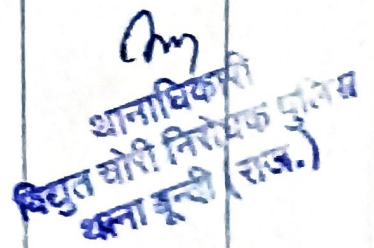 थानाधिकारी
विद्युत चोरी निरोधक पुलिस
थाना बून्दी (राज.)